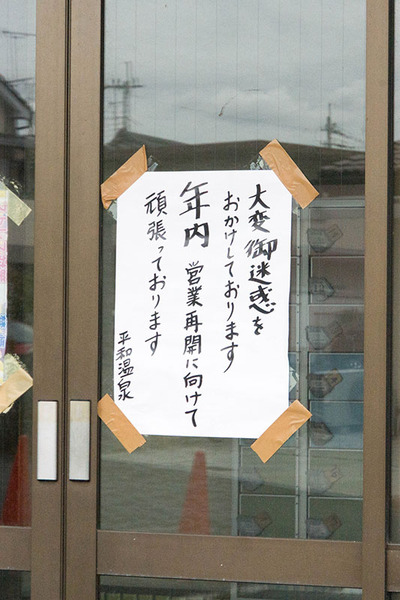 大変御迷惑を
おかけしております
年内 営業再開に向けて
頑張っております
平和温泉